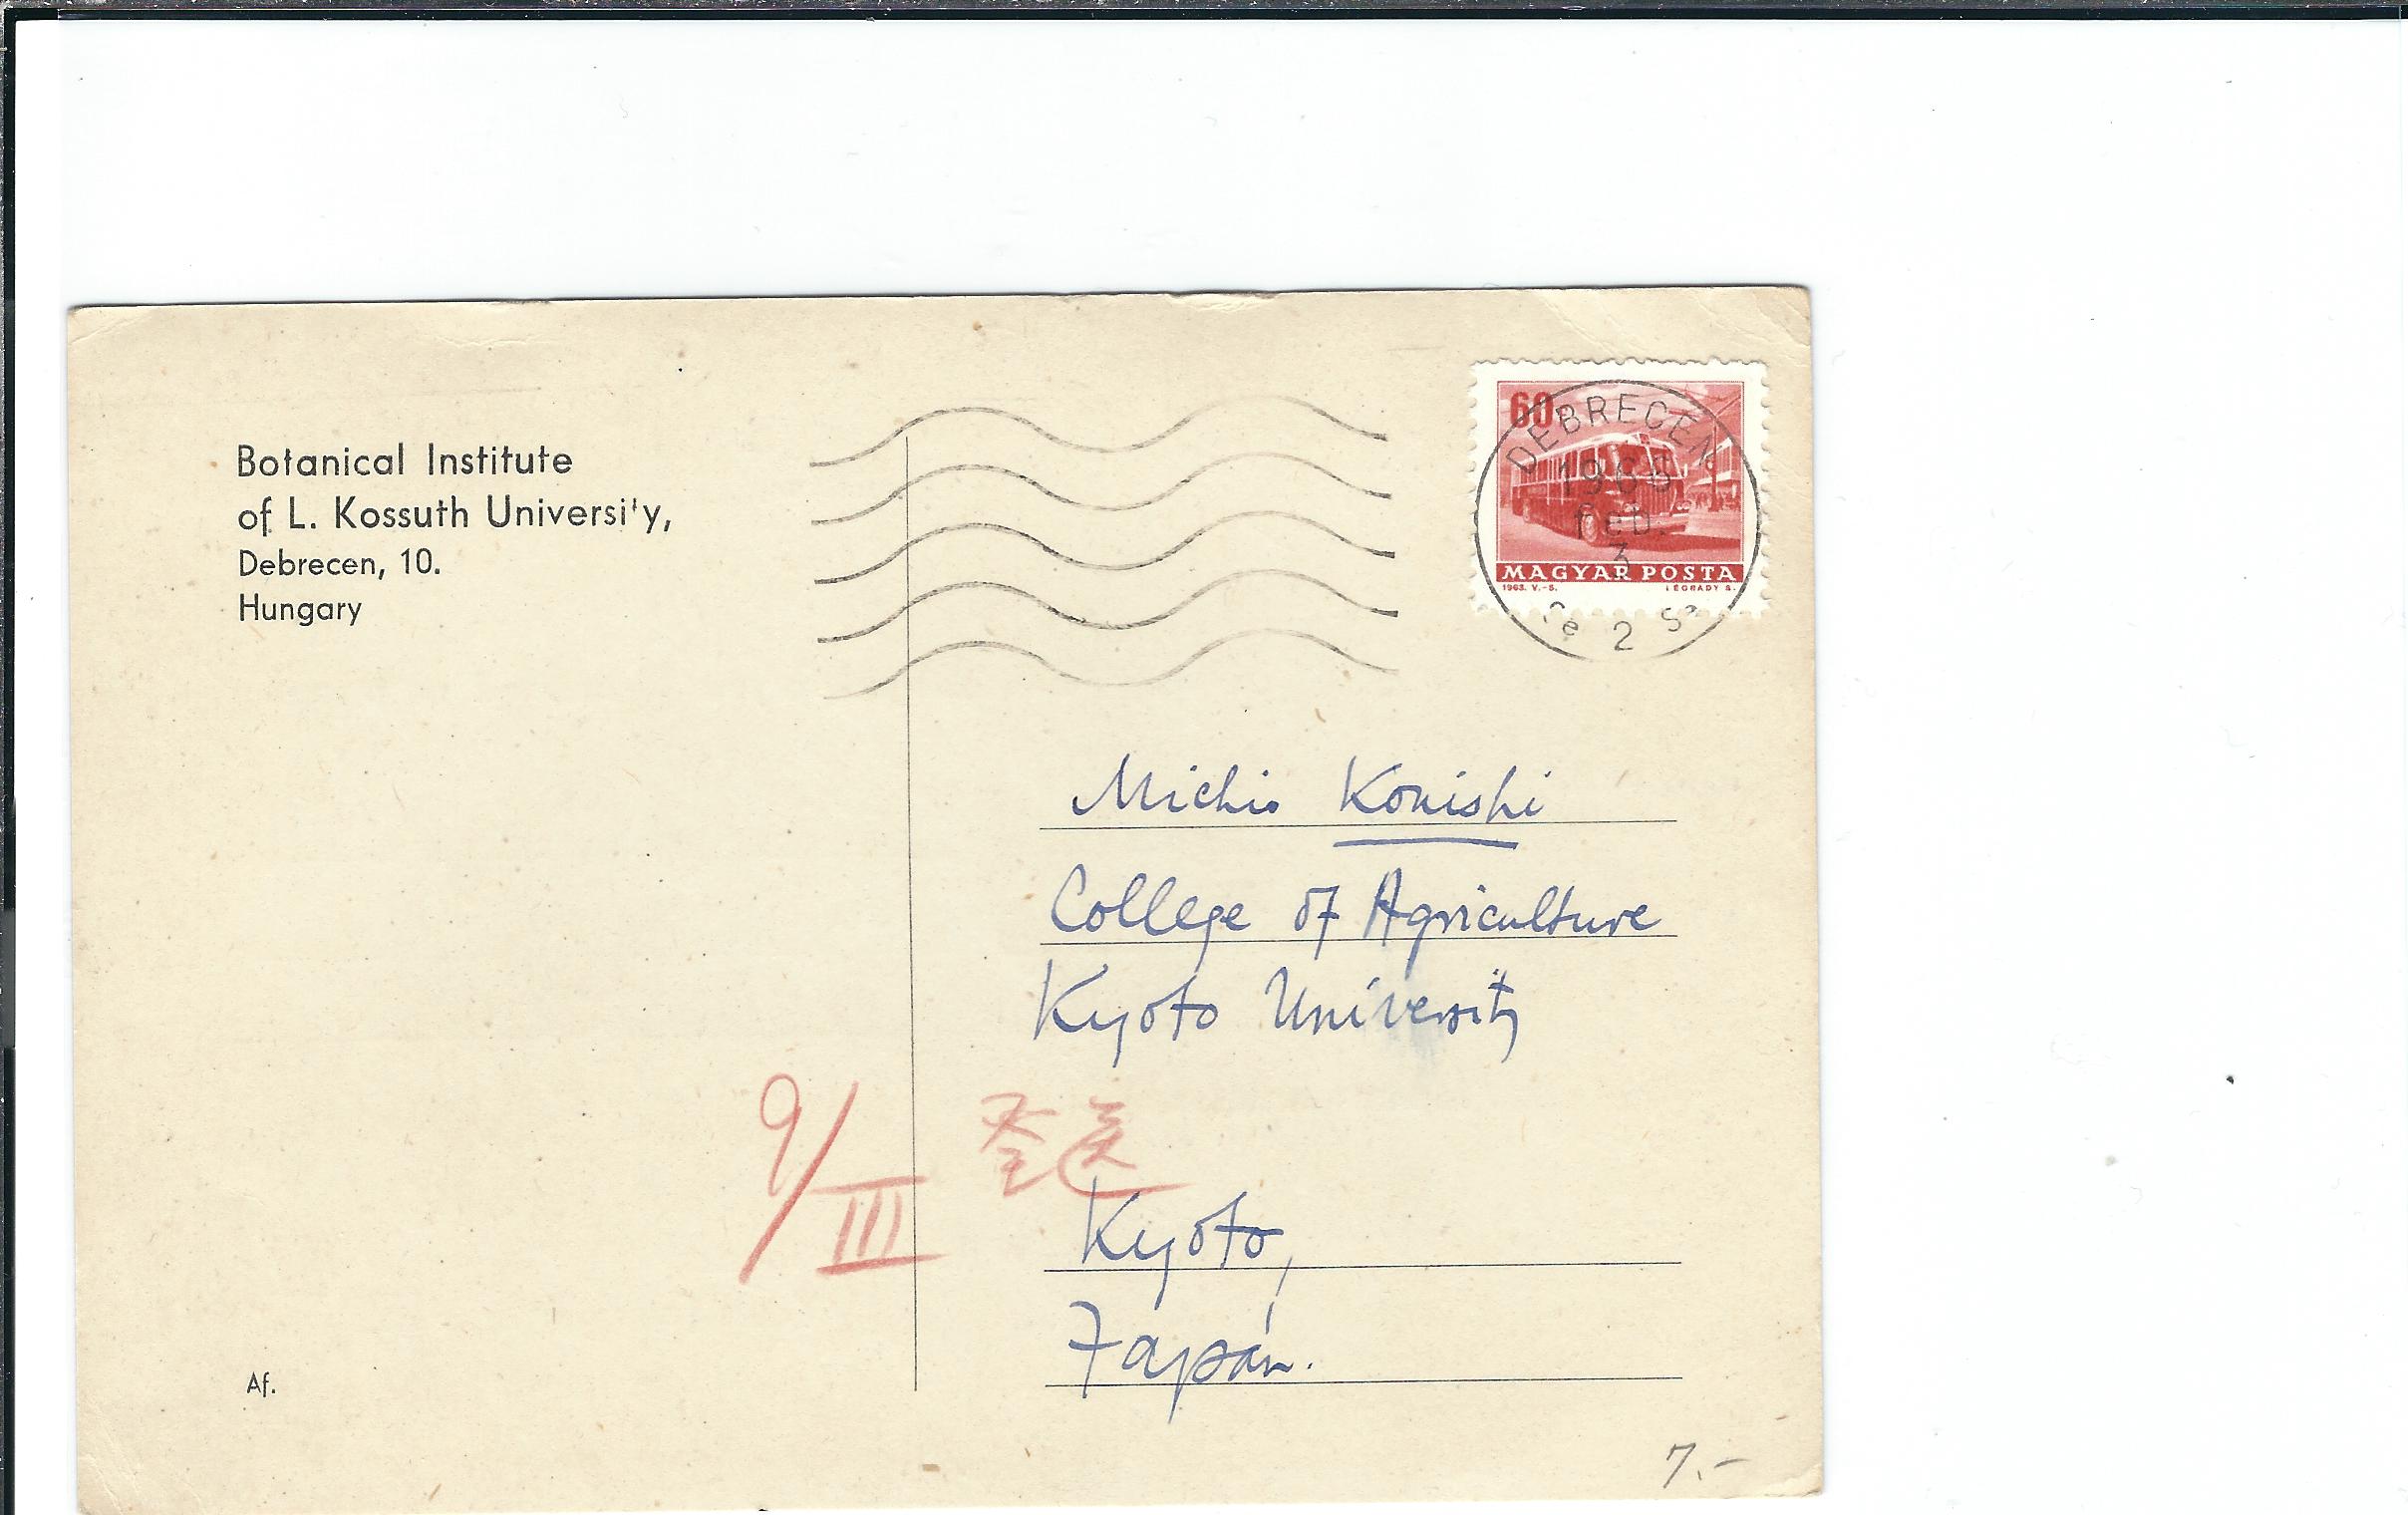 Botanical Institute
of L. Kossuth University,
Debrecen, 10.
Hungary
60
DEBRECEN
1966
FEB.
3
MAGYAR POSTA
1963. V.-S. LÉGRÁDY S.
2
Michio Konishi
College of Agriculture
Kyoto University
9/III
送
Kyoto,
Japán.
Af.
7.-